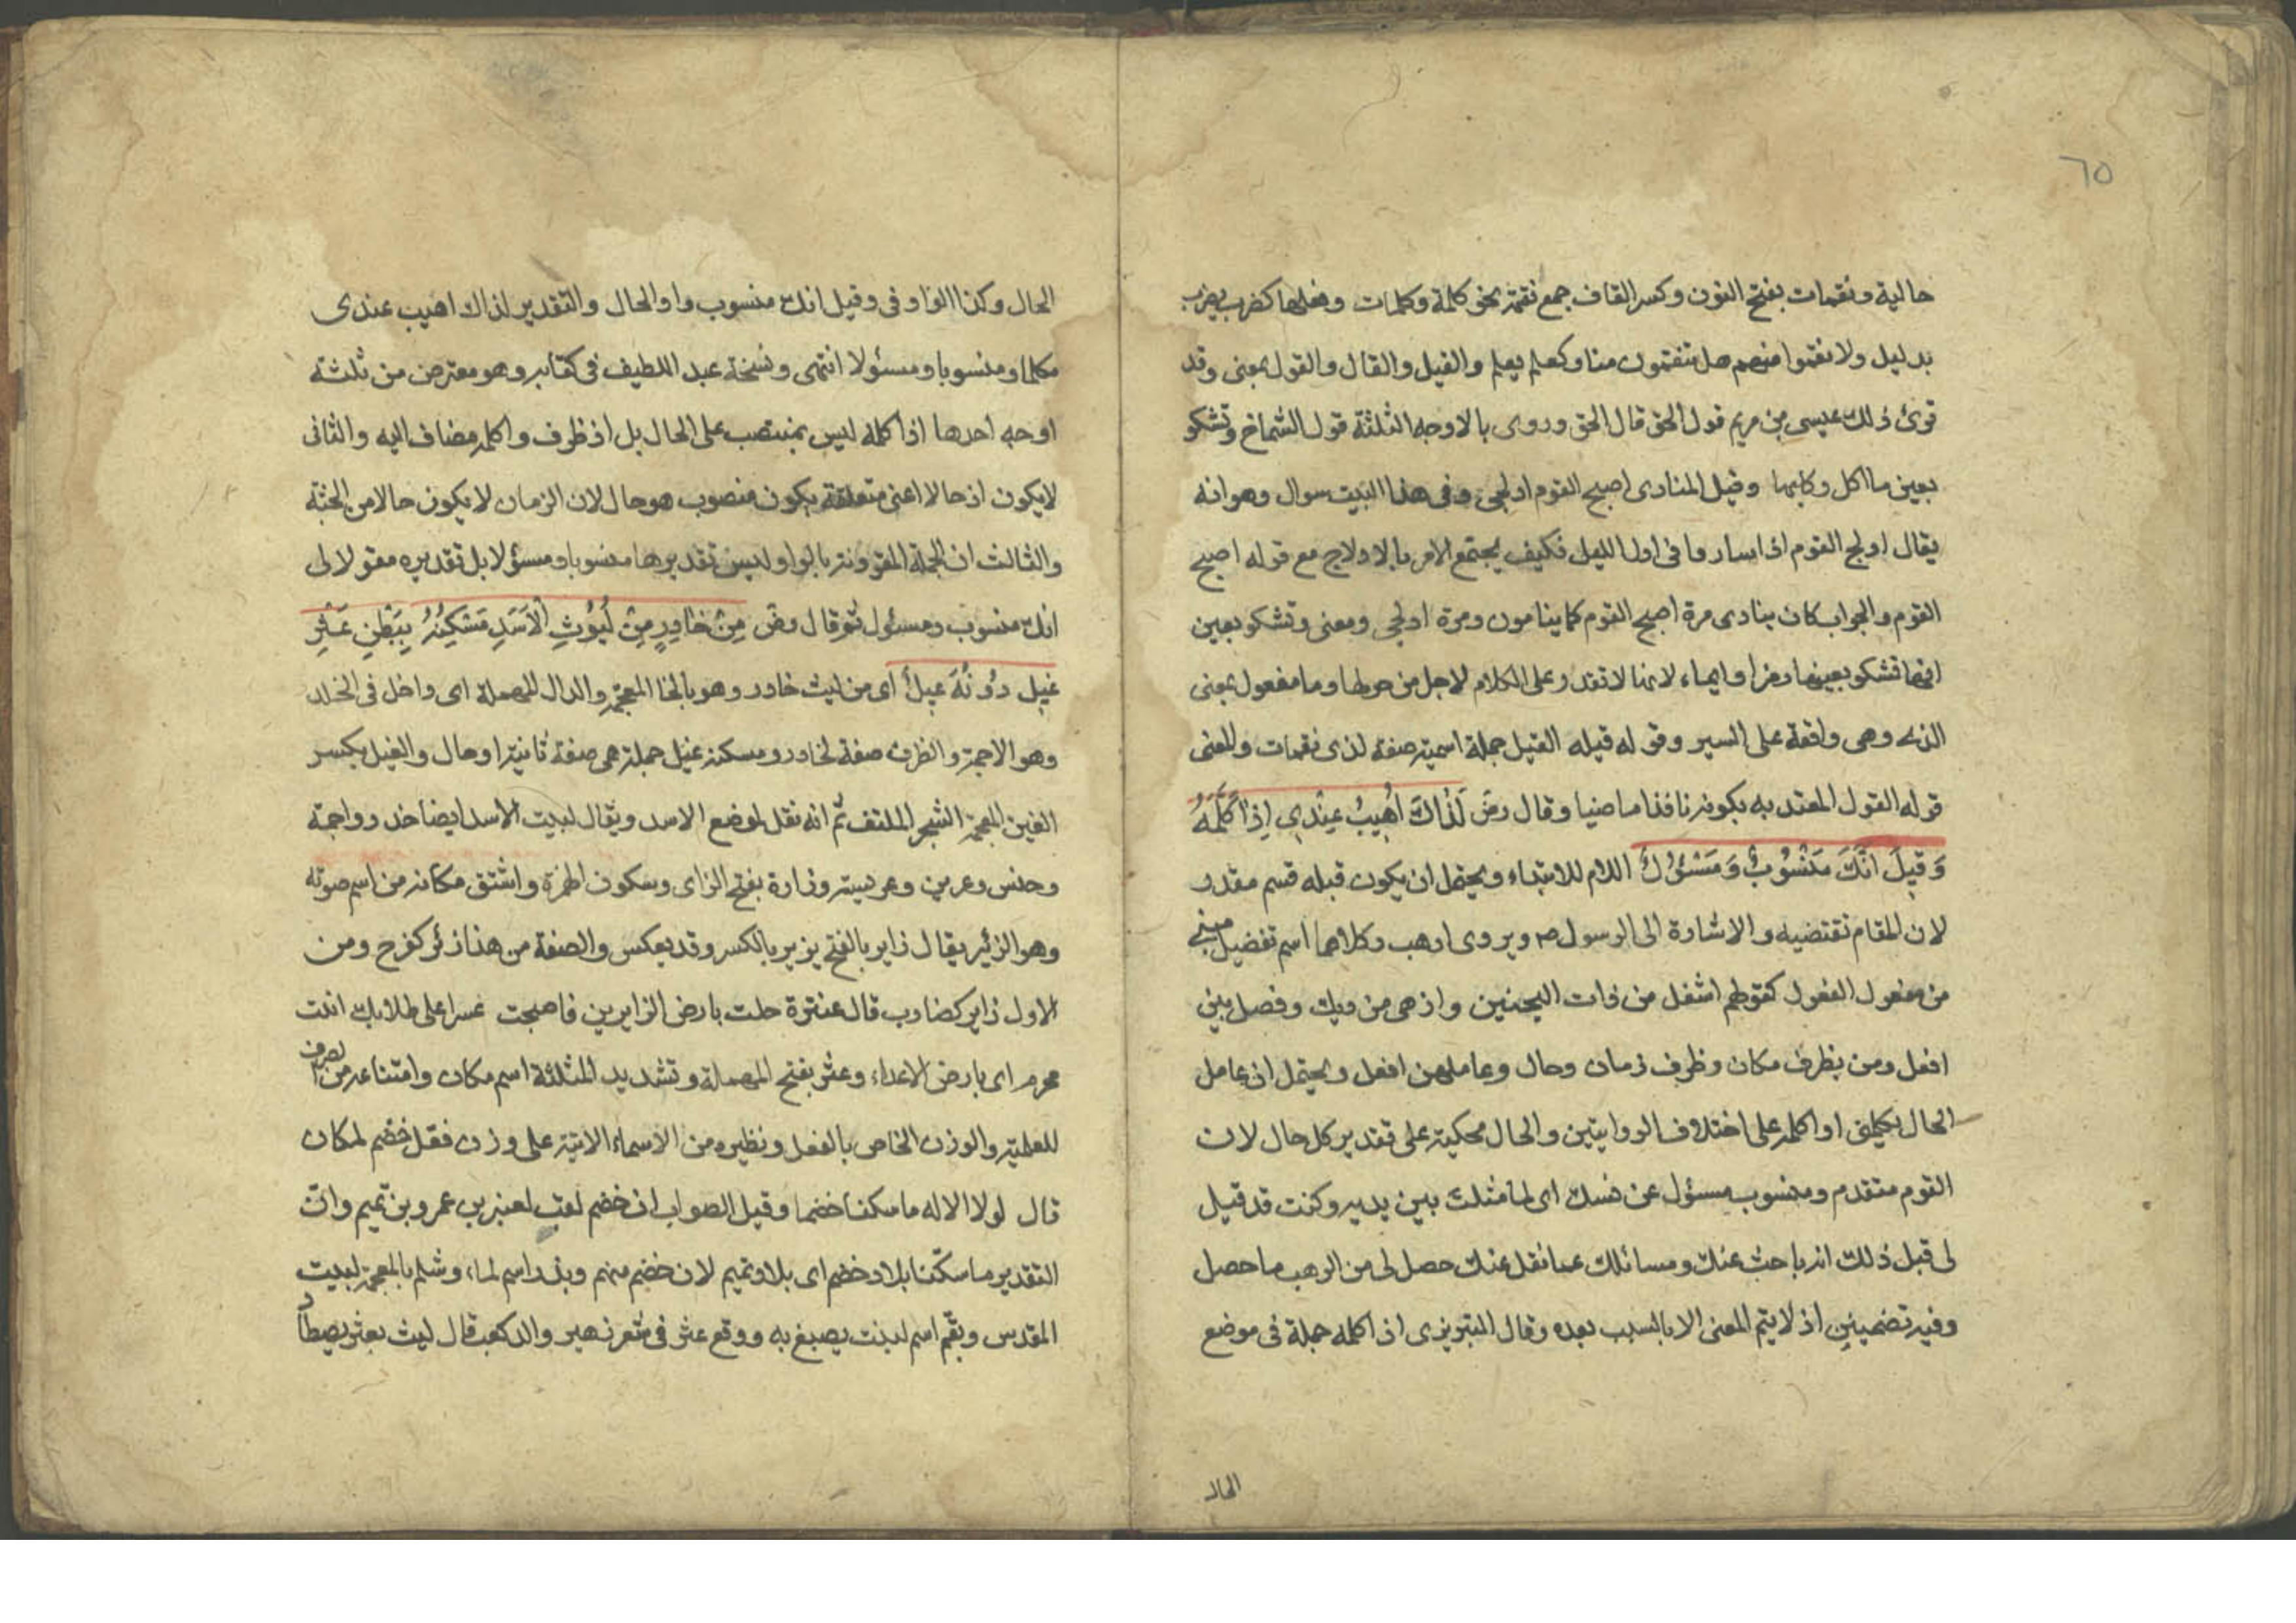 ٦٥
حالية ونقمات بفتح النون وكسر القاف جمع نقمة نحو كلمة وكلمات وفعلها كضرب يضرب
بدليل ولا نقموا منهم هل تنقمون منا وكعلم يعلم والقيل والقال والقول بمعنى وقد
قرئ ذلك عيسى بن مريم قول الحق قال الحق وروى بالاوجه الثلثة قول الشماخ وتشكو
بعين ما اكل ركابها وقيل المنادى اصبح القوم ادلجى وفى هذا البيت سوال وهو انه
يقال ادلج القوم اذا ساروا فى اول الليل فكيف يجتمع الامر بالادلاج مع قوله اصبح
القوم والجواب كان ينادى مرة اصبح القوم كما ينامون ومرة ادلجى ومعنى وتشكو بعين
انها تشكو بعينها رمزا وايماء لانها لا تقدر على الكلام لاجل من حولها وما مفعول بمعنى
الذى وهى واقعة على السير وقوله قيله القيل جملة اسمية صفة لذى نقمات والمعنى
قوله القول المعتد به بكونه نافذا ماضيا وقال رض لَذَاكَ اَهْيَبُ عِنْدِي اِذْ اُكَلِّمُهُ
وَقِيلَ اِنَّكَ مَنْسُوبٌ وَمَسْئُولٌ اللام للابتداء ويحتمل ان يكون قبله قسم مقدر
لان المقام تقتضيه والاشارة الى الرسول ص ويروى ارهب وكلاهما اسم تفضيل مبنى
من مفعول الفعول كقولهم اشغل من ذات النحيين وازهى من ديك وفصل بين
افعل ومن بظرف مكان وظرف زمان وحال وعاملهن افعل ويحتمل ان عامل
الحال يكلمنى او اكلمه على اختلاف الروايتين والحال محكية على تقدير كل حال لان
القوم متقدم ومنسوب مسؤل عن نسبك اى لما مثلت بين يديه وكنت قد قيل
لى قبل ذلك انه باحث عنك ومسائلك عما نقل عنك حصل لى من الرهب ما حصل
وفيه تضمين اذ لا يتم المعنى الا بالسبب بعده وقال التبريزى اذ اكلمه جملة فى موضع
الحال
الحال وكذا الواو فى وقيل انك منسوب واو الحال والتقدير لذاك اهيب عندى
مكلما ومنسوبا ومسئولا انتهى ونسخة عبد اللطيف فى كتابه وهو معترض من ثلثة
اوجه احدها اذ اكلمه ليس بمنتصب على الحال بل اذ ظرف واكلمه مضاف اليه والثانى
لا يكون اذ حالا اعنى متعلقة بكون منصوب هو حال لان الزمان لا يكون حالا من الجثة
والثالث ان الجملة المقرونة بالواو ليس تقديرها منسوبا ومسؤلا بل تقديره مقولا لى
انك منسوب ومسئول ثم قال رض مِنْ خَادِرٍ مِنْ لُيُوثِ الْاَسَدِ مَسْكِنُهُ بِبَطْنِ عَثَّرِ
غِيلٍ دُونَهُ غِيلٌ اى من ليث خادر وهو بالخا المعجمة والدال المهملة اى داخل فى الخدر
وهو الاجمة والظرف صفة لخادر ومسكنه غيل جملة هى صفة ثانية او حال والغيل بكسر
الغين المعجمة الشجر الملتف ثم انه نقل لموضع الاسد ويقال لبيت الاسد ايضا خدر واجمة
وخنس وعرين وعريسة وزارة بفتح الزاى وسكون الهمزة واشتق مكانه من اسم صوته
وهو الزئير يقال زاير بالفتح يزير بالكسر وقد يعكس والصفة من هذا زئر كفرح ومن
الاول زاير كضارب قال عنترة حلت بارض الزايرين فاصبحت عسرا على طلابك ابنت
محرم اى بارض الاعداء وعثر بفتح المهملة وتشديد المثلثة اسم مكان وامتناعه من الصرف
للعلمية والوزن الخاص بالفعل ونظيره من الاسماء الاتية على وزن فعّل خضم لمكان
قال لولا الاله ما سكنا خضما وقيل الصواب ان خضم لقب لعنبر بن عمرو بن تميم وان
التقدير ما سكنا بلاد خضم اى بلاد تميم لان خضم منهم وبذر اسم لماء وشلم بالمعجمة لبيت
المقدس وبقم اسم لنبت يصبغ به ووقع عثر فى شعر زهير والد كعب قال ليث بعثر يصطاد